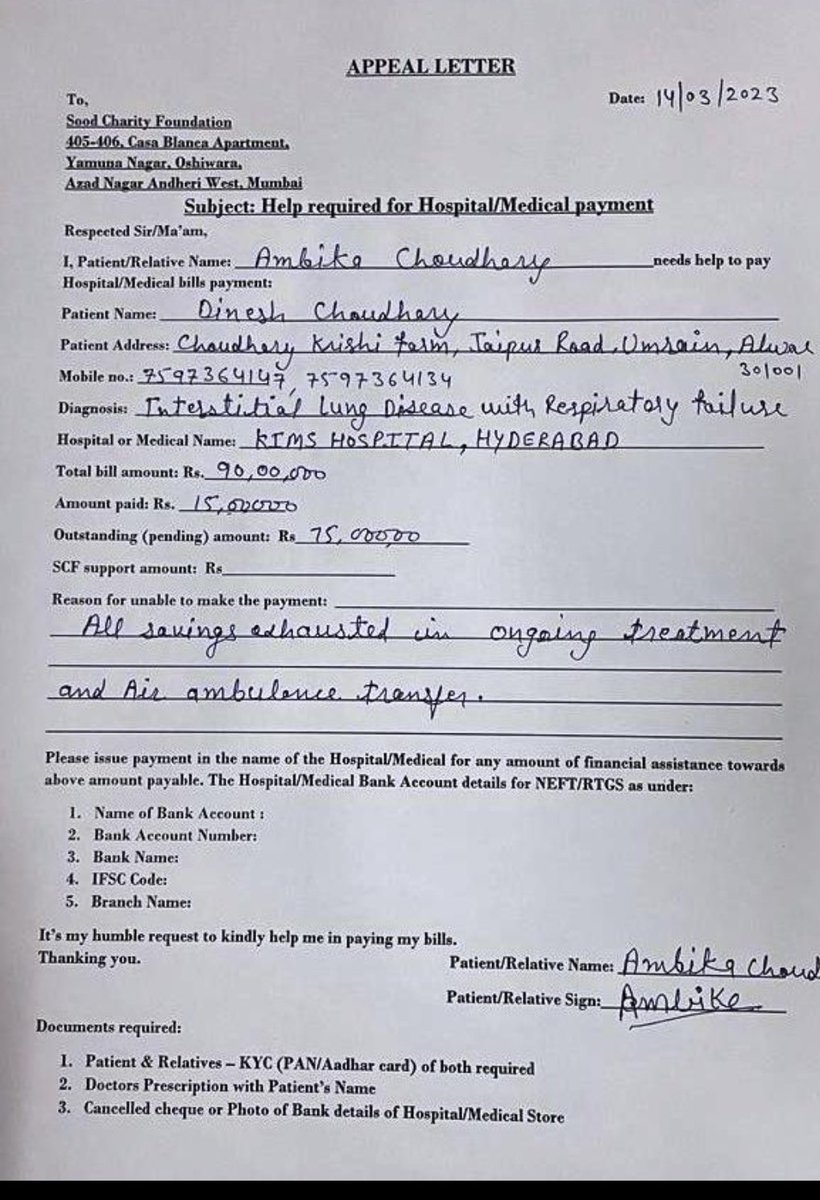 APPEAL LETTER
To,
Date: 14/03/2023
Sood Charity Foundation
405-406, Casa Blanca Apartment,
Yamuna Nagar, Oshiwara,
Azad Nagar Andheri West, Mumbai
Subject: Help required for Hospital/Medical payment
Respected Sir/Ma'am,
I, Patient/Relative Name: Ambika Choudhary needs help to pay
Hospital/Medical bills payment:
Patient Name: Dinesh Choudhary
Patient Address: Choudhary Krishi farm, Jaipur Road, Umrain, Alwar
301001
Mobile no.: 7597364147, 7597364134
Diagnosis: Interstitial Lung Disease with Respiratory failure
Hospital or Medical Name: KIMS HOSPITAL, HYDERABAD
Total bill amount: Rs. 90,00,000
Amount paid: Rs. 15,00000
Outstanding (pending) amount: Rs 75,00000
SCF support amount: Rs
Reason for unable to make the payment:
All savings exhausted in ongoing treatment
and Air ambulance transfer.
Please issue payment in the name of the Hospital/Medical for any amount of financial assistance towards
above amount payable. The Hospital/Medical Bank Account details for NEFT/RTGS as under:
1. Name of Bank Account :
2. Bank Account Number:
3. Bank Name:
4. IFSC Code:
5. Branch Name:
It's my humble request to kindly help me in paying my bills.
Thanking you.
Patient/Relative Name: Ambika Choud
Patient/Relative Sign: Ambika
Documents required:
1. Patient & Relatives – KYC (PAN/Aadhar card) of both required
2. Doctors Prescription with Patient's Name
3. Cancelled cheque or Photo of Bank details of Hospital/Medical Store